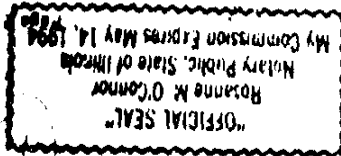 "OFFICIAL SEAL"
Rosanne M. O'Connor
Notary Public, State of Illinois
My Commission Expires May 14, 1994